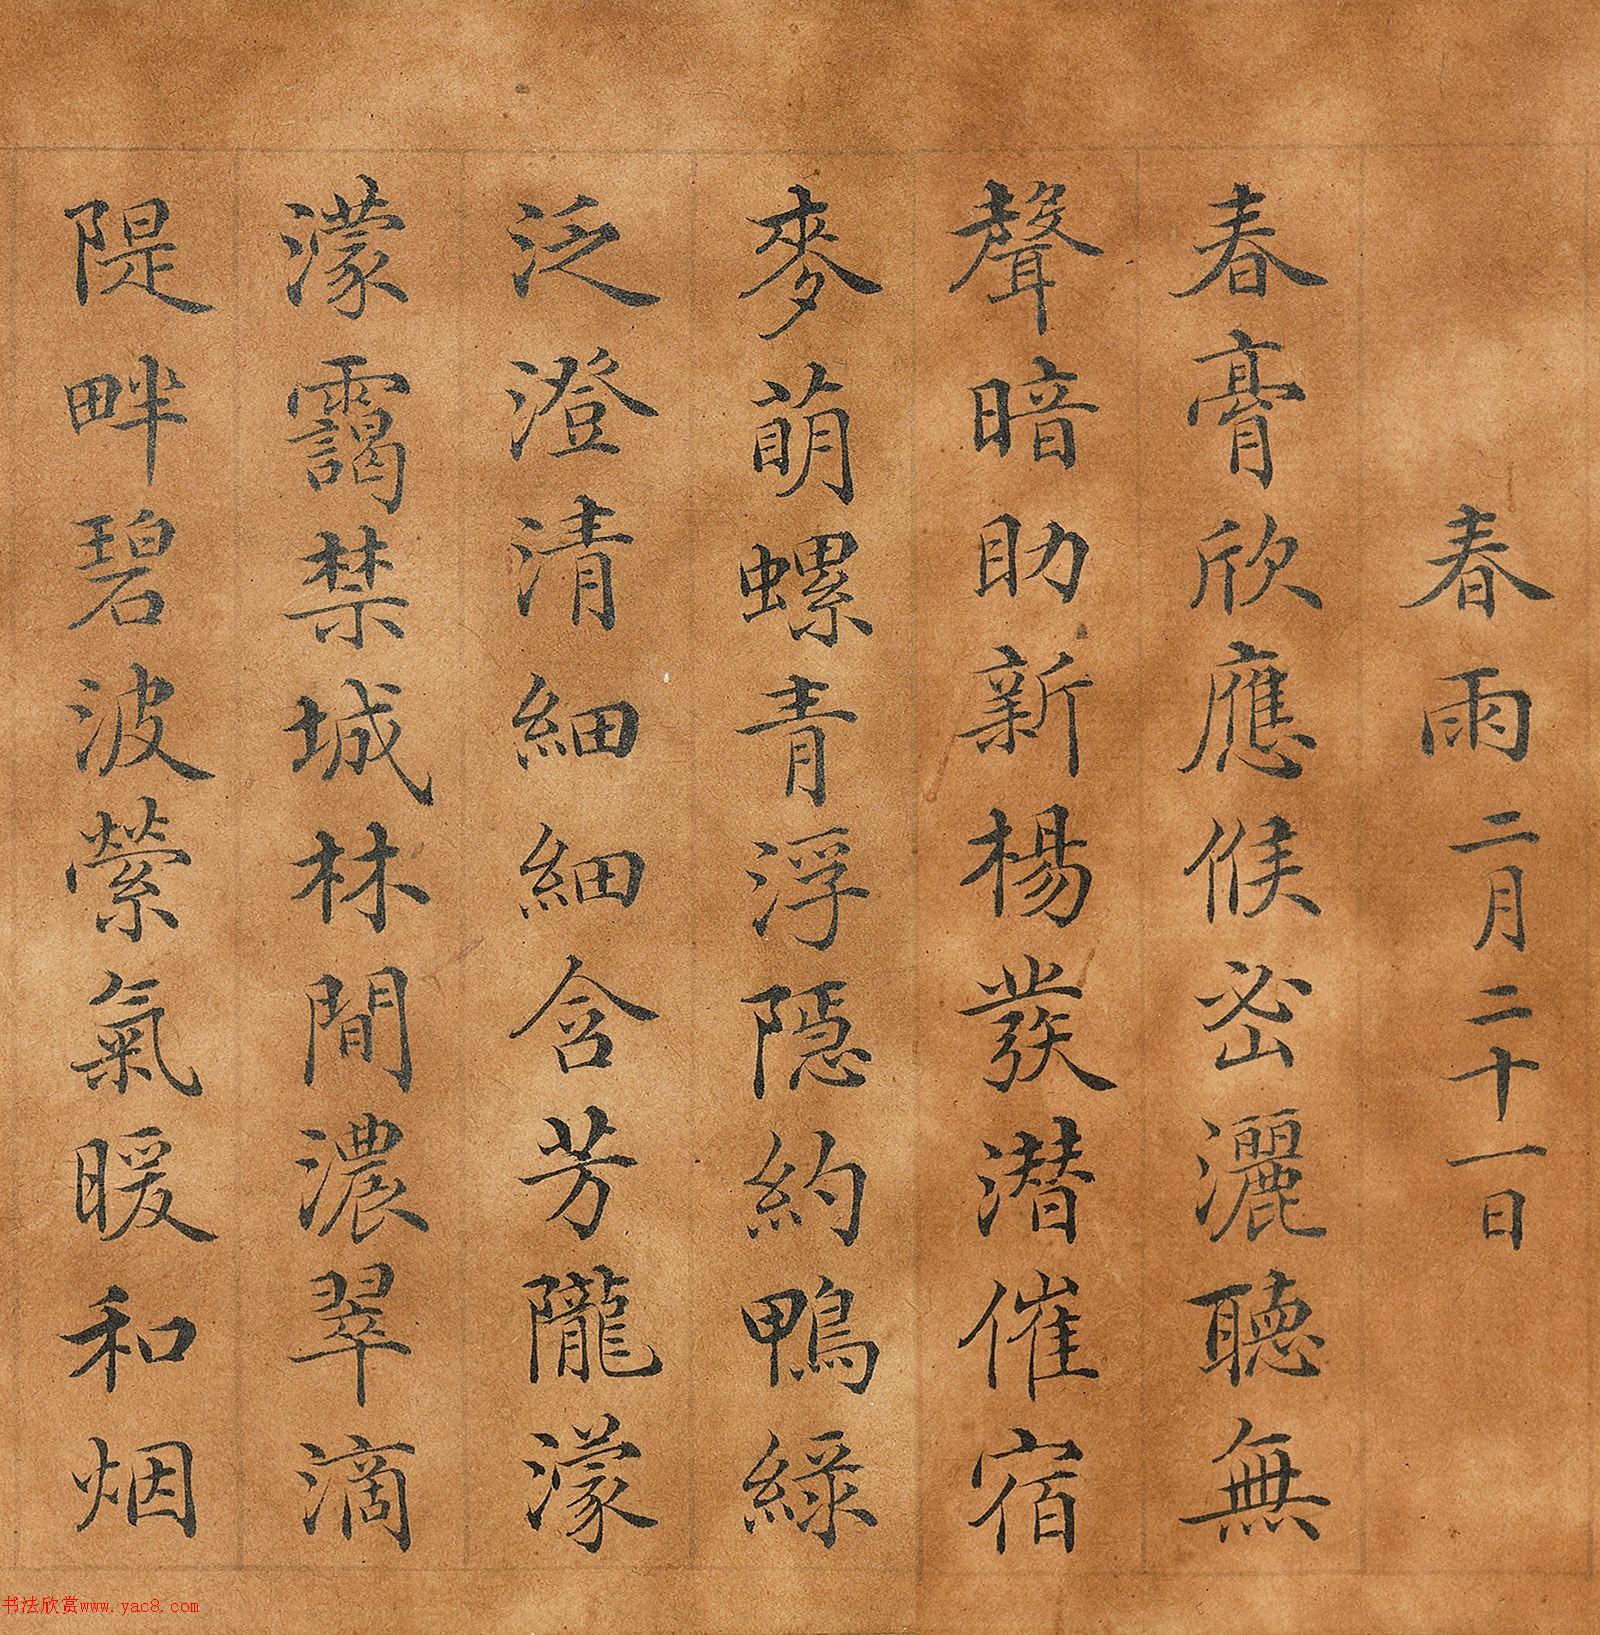 春雨 二月二十一日
春膏欣應候密灑聽無
聲暗助新楊發潛催宿
麥萌螺青浮隱約鴨綠
泛澄清細細含芳隴濛
濛靄禁城林間濃翠滴
隄畔碧波縈氣暖和烟
书法欣赏www.yac8.com